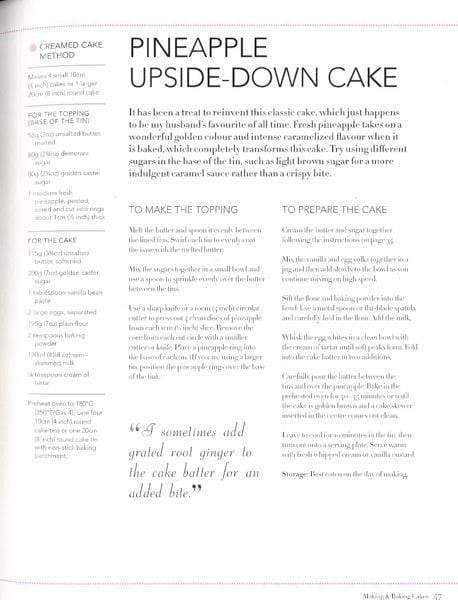 CREAMED CAKE
METHOD
Makes 4 small 10cm
(4 inch) cakes or 1 larger
20cm (8 inch) round cake
FOR THE TOPPING
(BASE OF THE TIN)
unsalted butter,
melted
80g (2¾oz) demerara
sugar
80g (2¾oz) golden caster
sugar
1 medium fresh
pineapple, peeled,
cored and cut into rings
about 1cm (½ inch) thick
FOR THE CAKE
115g unsalted
butter, softened
200g (7oz) golden caster
sugar
1 tablespoon vanilla bean
paste
2 large eggs, separated
195g (7oz) plain flour
2 teaspoons baking
powder
120ml semi-
skimmed milk
¼ teaspoon cream of
tartar
Preheat oven to 180°C
(350°F/Gas 4). Line four
10cm (4 inch) round
cake tins or one 20cm
(8 inch) round cake tin
with non-stick baking
parchment.
PINEAPPLE
UPSIDE-DOWN CAKE
It has been a treat to reinvent this classic cake, which just happens
to be my husband's favourite of all time. Fresh pineapple takes on a
wonderful golden colour and intense caramelized flavour when it
is baked, which completely transforms this cake. Try using different
sugars in the base of the tin, such as light brown sugar for a more
indulgent caramel sauce rather than a crispy bite.
TO MAKE THE TOPPING
Melt the butter and spoon it evenly between
the lined tins. Swirl each tin to evenly coat
the base with the melted butter.
Mix the sugars together in a small bowl and
use a spoon to sprinkle evenly over the butter
between the tins.
Use a sharp knife or a 10cm (4 inch) circular
cutter to press out 4 clean discs of pineapple
from each 1cm (½ inch) slice. Remove the
core from each cut circle with a smaller
cutter or knife. Place a pineapple ring into
the base of each tin. (If you are using a larger
tin, position the pineapple rings over the base
of the tin).
“I sometimes add
grated root ginger to
the cake batter for an
added bite.”
TO PREPARE THE CAKE
Cream the butter and sugar together
following the instructions on page 35.
Mix the vanilla and egg yolks together in a
jug and then add slowly to the bowl as you
continue mixing on high speed.
Sift the flour and baking powder into the
bowl. Use a metal spoon or flat-blade spatula
and carefully fold in the flour. Add the milk.
Whisk the egg whites in a clean bowl with
the cream of tartar until soft peaks form. Fold
into the cake batter in two additions.
Carefully pour the batter between the
tins and over the pineapple. Bake in the
preheated oven for minutes or until
the cake is golden brown and a cake skewer
inserted in the centre comes out clean.
Leave to cool for 10 minutes in the tin, then
turn out onto a serving plate. Serve warm
with fresh whipped cream or vanilla custard.
Storage: Best eaten on the day of making.
Making & Baking Cakes 47